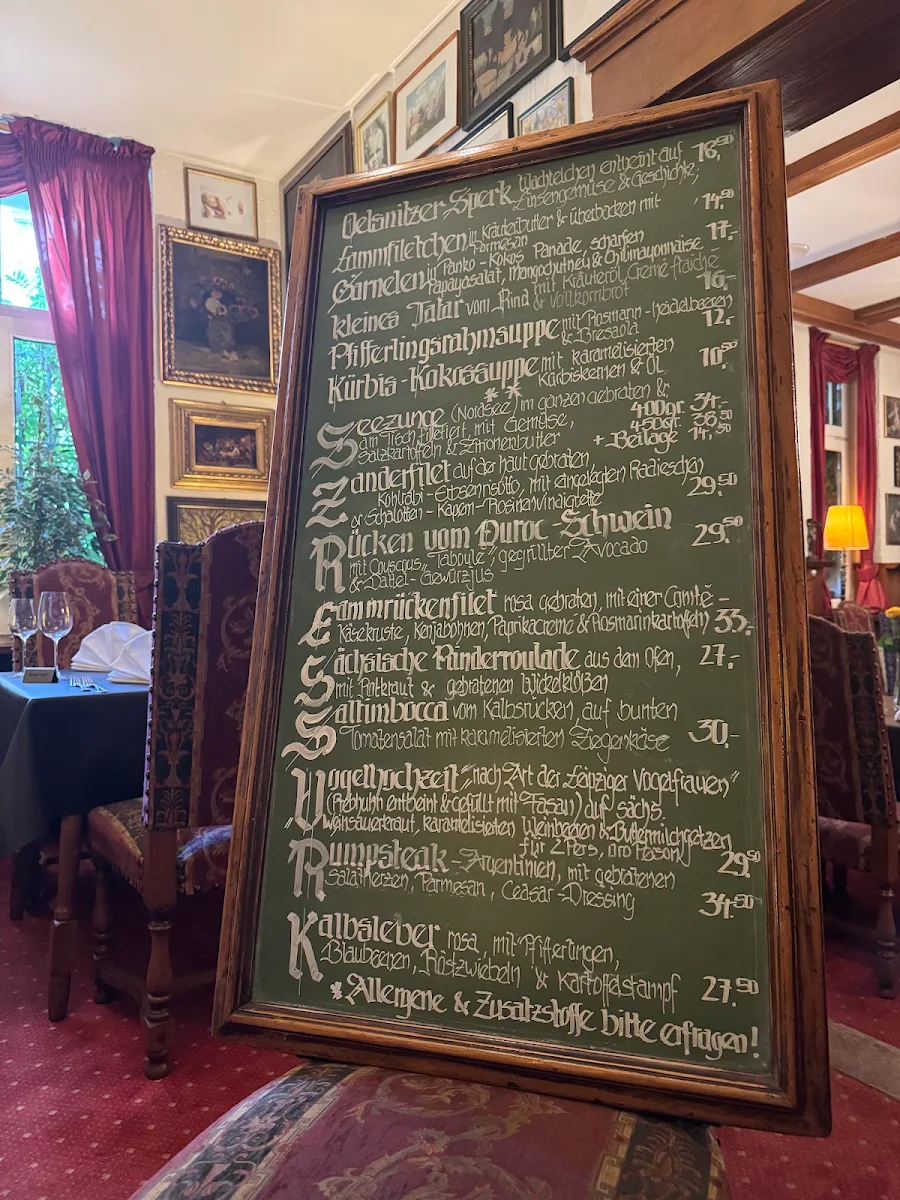 Oelsnitzer-Sperk Wachtelchen entbeint auf 16,50
Linsengemüse & Geschichte,
Lammfiletchen in Kräuterbutter & überbacken mit 14,50
Parmesan
Garnelen in Panko-Kokos Panade, scharfen 17.-
Papayasalat, Mangochutney & Chilimayonnaise
kleines Tatar vom Rind mit Kräuteröl, Creme fraîche 16,-
& Vollkornbrot
Pfifferlingsrahmsuppe mit Rosmarin-heidelbeeren 12,-
& Bresaola
Kürbis-Kokossuppe mit karamelisierten 10,50
Kürbiskernen & Öl
**
Seezunge (Nordsee) im ganzen gebraten &
am Tisch filetiert, mit Gemüse, 400gr. 34.-
Salzkartoffeln & Zitronenbutter 450gr. 38,50
+ Beilage 14,50
Zanderfilet auf der haut gebraten
Kohlrabi-Erbsenrisotto, mit eingelegten Radieschen
& Schalotten-Kapern-Rosinenvinaigrette 29,50
Rücken vom Duroc-Schwein
mit Couscous "Taboulé", gegrillter Avocado 29,50
& Dattel-Gewürzjus
Lammrückenfilet rosa gebraten, mit einer Comté-
Käsekruste, Kenjabohnen, Paprikacreme & Rosmarinkartoffeln 33.-
Sächsische Rinderroulade aus dem Ofen, 27.-
mit Rotkraut & gebratenen Wickelklößen
Saltimbocca vom Kalbsrücken, auf bunten
Tomatensalat mit karamelisierten Ziegenkäse 30.-
Vogelhochzeit "nach Art der Leipziger Vogelfrauen"
(Rebhuhn entbeint & gefüllt mit Fasan) auf sächs.
Weinsauerkraut, karamelisierten Weinbeeren & Buttermilchgetzen
für 2 Pers, pro Person) 29,50
Rumpsteak-Argentinien, mit gebratenen
Salatherzen, Parmesan, Ceasar-Dressing 34,50
Kalbsleber rosa, mit Pfifferlingen,
Blaubeeren, Röstzwiebeln & Kartoffelstampf 27,50
* Allergene & Zusatzstoffe bitte erfragen!